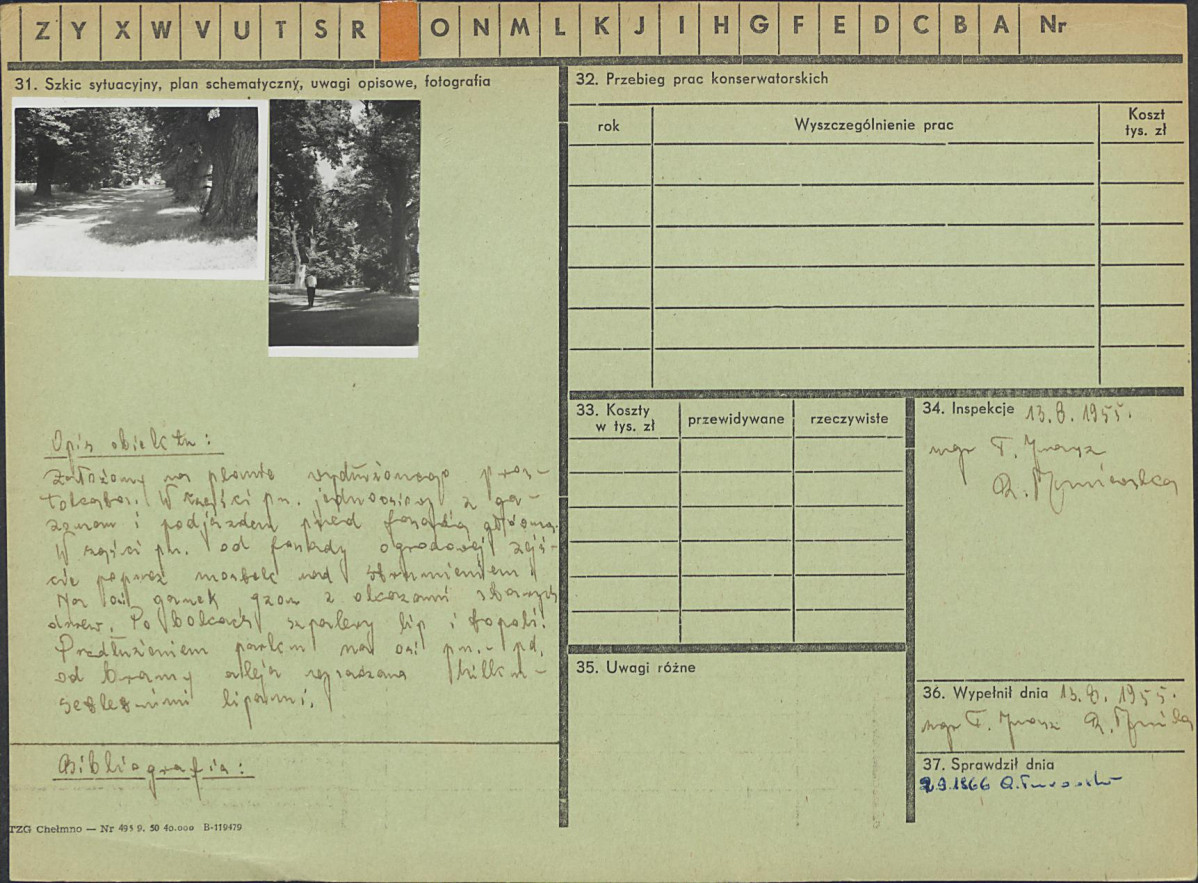 Z Y X W V U T S R O N M L K J I H G F E D C B A Nr
31. Szkic sytuacyjny, plan schematyczny, uwagi opisowe, fotografia
Opis obiektu:
Założony na planie wydłużonego pros-
tokąta. W części pn. jednoosiowy z ga-
zonem i podjazdem przed fasadą główną.
W części pn. od fasady ogrodowej zejś-
cie poprzez mostek nad strumieniem.
Na osi ganek gzon z okazami starych
drzew. Po bokach szpalery lip i topoli.
Przedłużeniem parku na osi pn. - pd.
od bramy aleja wysadzana kilku-
setletnimi lipami.
Bibliografia:
TZG Chełmno — Nr 495 9. 50 40.000 B-119479
32. Przebieg prac konserwatorskich
rok
Wyszczególnienie prac
Koszt
tys. zł
33. Koszty
w tys. zł
przewidywane
rzeczywiste
34. Inspekcje 13.8.1955.
mgr T.
R.
35. Uwagi różne
36. Wypełnił dnia 13.8.1955.
mgr T. R.
37. Sprawdził dnia
2.9.1966